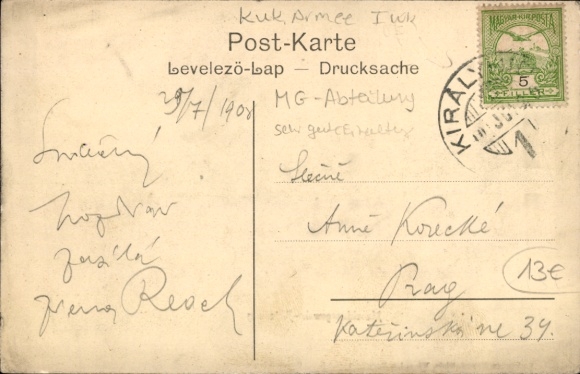 KuK Armee I WK
Post-Karte
Levelezö-Lap — Drucksache
MG-Abteilung
sehr gut erhalten
MAGYAR KIR. POSTA
5
FILLER
KIRÁLY
1
29/7/1908
Srdečný
pozdrav
zasílá
Slečně
Anně Korecké
Prag
Kateřinská ne 34.
13€